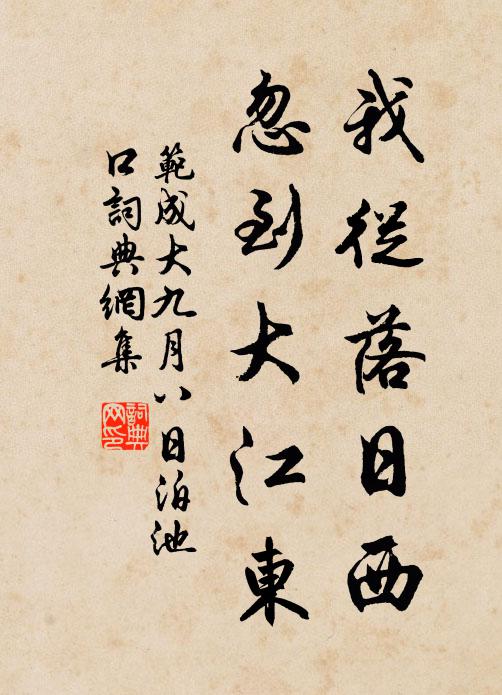 我從落日西
忽到大江東
範成大九月八日泊池
口詞典網集
詞典网印